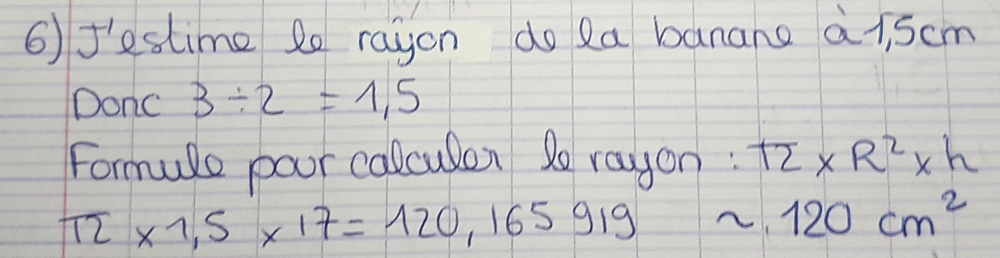 6) J'estime le rayon de la banane à 1,5cm
Donc 3 ÷ 2 = 1,5
Formule pour calculer le rayon : π × R² × h
π × 1,5 × 17 = 120,165 919 ~. 120 cm²